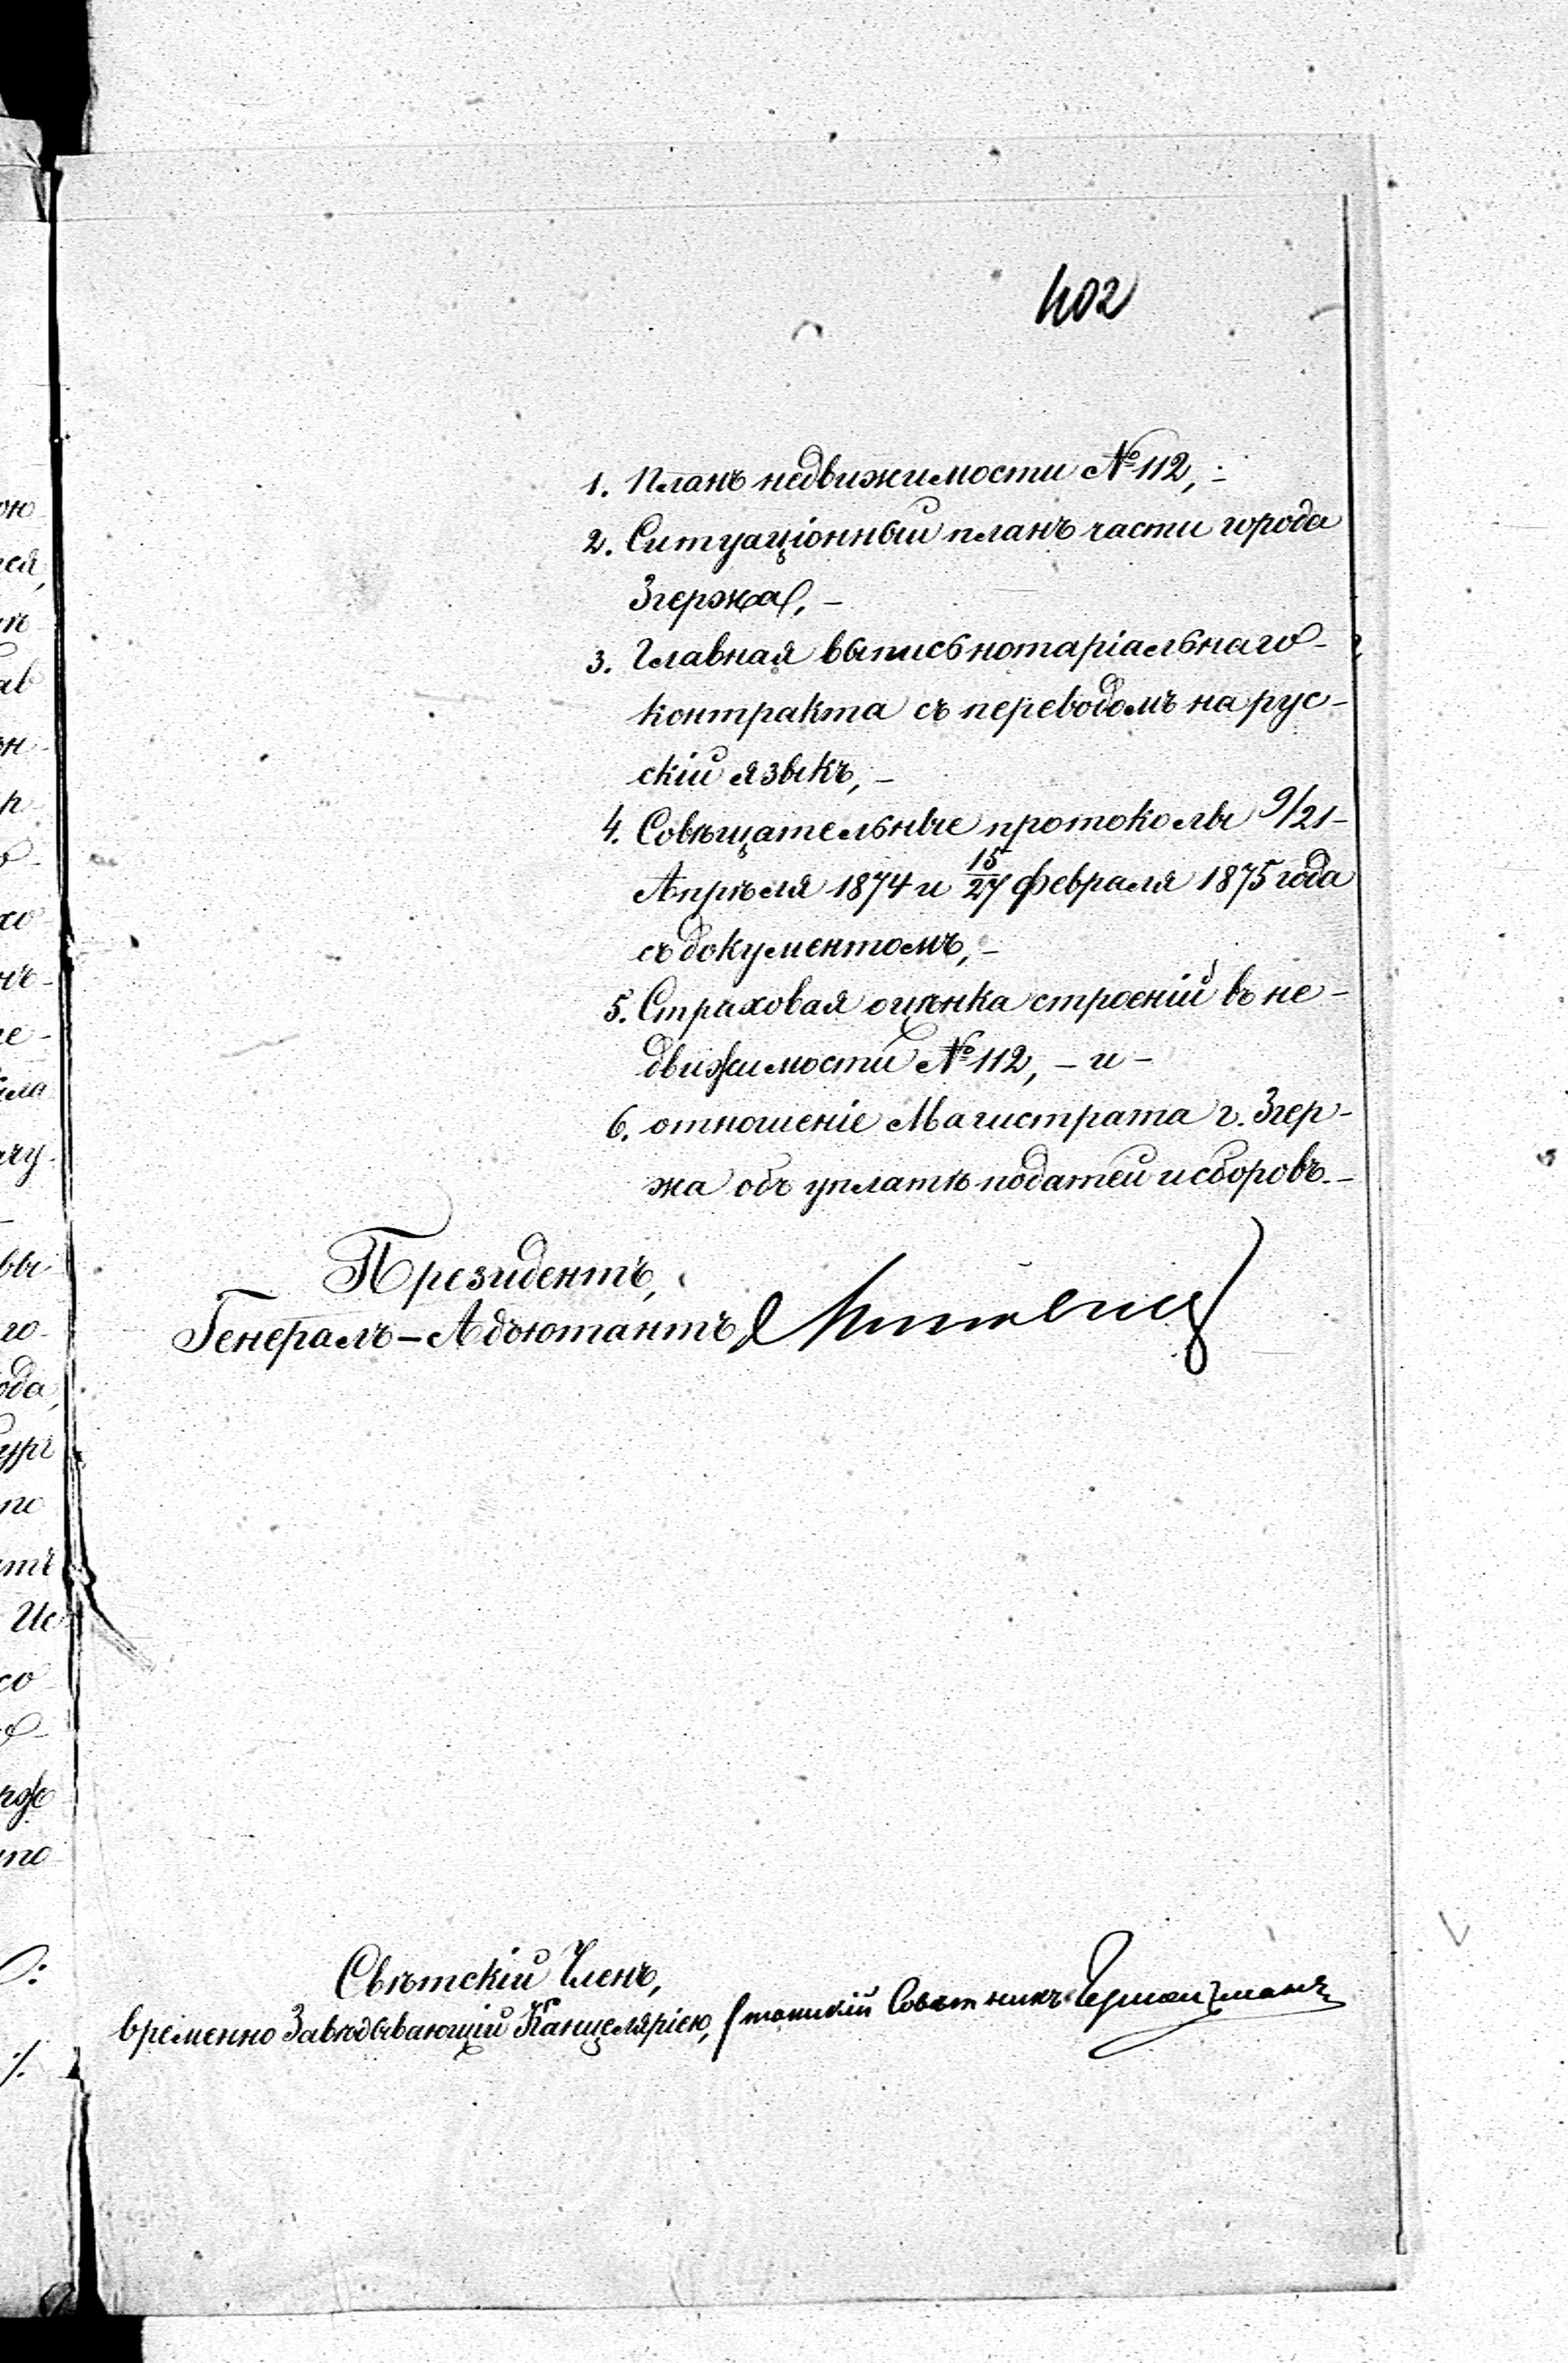 402
1. Планъ недвижимости № 112, -
2. Ситуаціонный планъ части города
Згержа, -
3. Главная выпись нотаріальнаго -
контракта съ переводомъ на рус-
скій языкъ, -
4. Совѣщательные протоколы 9/21 -
Апрѣля 1874 и 15/27 Февраля 1875 года
съ документомъ, -
5. Страховая оцѣнка строеній въ не-
движимости № 112, - и -
6. отношеніе Магистрата г. Згер-
жа объ уплатѣ податей и сборовъ. -
Президентъ,
Генералъ-Адъютантъ
Свѣтскій Членъ,
временно Завѣдывающій Канцеляріею, Статскій Совѣтникъ